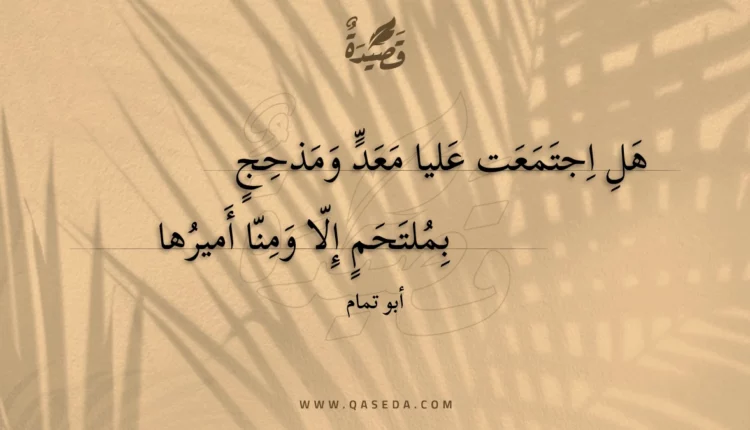 قَصِيْدَةٌ
هَلِ اِجتَمَعَت عَليا مَعَدٍّ وَمَذحِجٍ
بِمُلتَحَمٍ إِلّا وَمِنّا أَميرُها
أبو تمام
WWW.QASEDA.COM